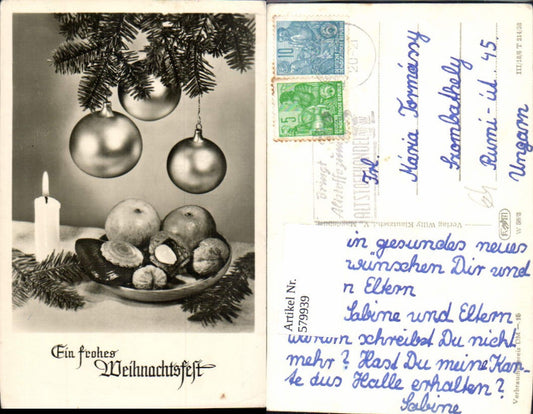 Ein frohes
Weihnachtsfest
10
5
Bringt
Altstoffe zum
ALTSTOFFHANDEL
Frl.
Mária Tormássy
Szombathely
Rumi-út. 45.
Ungarn
III/18/6 T 514/58
Verlag Willy Klautzsch,
W 58/8
in gesundes neues
wünschen Dir und
n Eltern
Sabine und Eltern
Warum schreibst Du nicht
mehr? Hast Du meine Kar-
te aus Halle erhalten?
Sabine
Artikel Nr.
579939